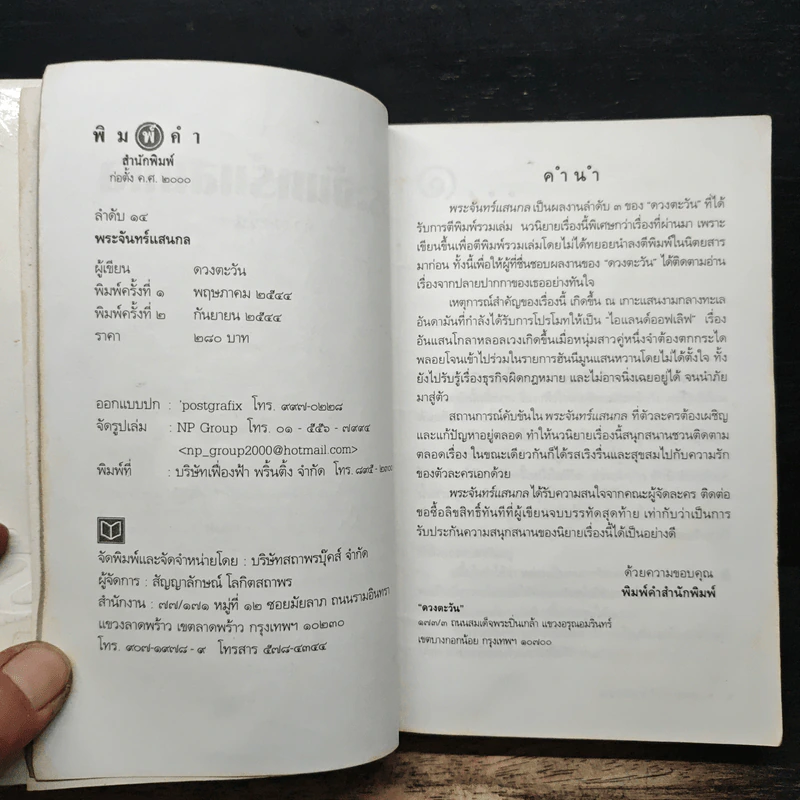 พิมพ์คำ
สำนักพิมพ์
ก่อตั้ง ค.ศ. ๒๐๐๐
ลำดับ ๑๔
พระจันทร์แสนกล
ผู้เขียน ดวงตะวัน
พิมพ์ครั้งที่ ๑ พฤษภาคม ๒๕๔๔
พิมพ์ครั้งที่ ๒ กันยายน ๒๕๔๔
ราคา ๒๘๐ บาท
ออกแบบปก : 'postgrafix โทร. ๙๙๗-๐๒๒๘
จัดรูปเล่ม : NP Group โทร. ๐๑ - ๕๕๖ - ๗๙๙๔
<np_group2000@hotmail.com>
พิมพ์ที่ : บริษัทเฟื่องฟ้า พริ้นติ้ง จำกัด โทร. ๘๙๕ - ๒๓๐๐
จัดพิมพ์และจัดจำหน่ายโดย : บริษัทสถาพรบุ๊คส์ จำกัด
ผู้จัดการ : สัญญาลักษณ์ โลกิตสถาพร
สำนักงาน : ๗๗/๑๗๑ หมู่ที่ ๑๒ ซอยมัยลาภ ถนนรามอินทรา
แขวงลาดพร้าว เขตลาดพร้าว กรุงเทพฯ ๑๐๒๓๐
โทร. ๙๐๗-๑๙๗๘ - ๙ โทรสาร ๕๗๘-๔๓๔๔
คำนำ
พระจันทร์แสนกล เป็นผลงานลำดับ ๓ ของ "ดวงตะวัน" ที่ได้
รับการตีพิมพ์รวมเล่ม นวนิยายเรื่องนี้พิเศษกว่าเรื่องที่ผ่านมา เพราะ
เขียนขึ้นเพื่อตีพิมพ์รวมเล่มโดยไม่ได้ทยอยนำลงตีพิมพ์ในนิตยสาร
มาก่อน ทั้งนี้เพื่อให้ผู้ที่ชื่นชอบผลงานของ "ดวงตะวัน" ได้ติดตามอ่าน
เรื่องจากปลายปากกาของเธออย่างทันใจ
เหตุการณ์สำคัญของเรื่องนี้ เกิดขึ้น ณ เกาะแสนงามกลางทะเล
อันดามันที่กำลังได้รับการโปรโมทให้เป็น "ไอแลนด์ออฟเลิฟ" เรื่อง
อันแสนโกลาหลอลเวงเกิดขึ้นเมื่อหนุ่มสาวคู่หนึ่งจำต้องตกกระได
พลอยโจนเข้าไปร่วมในรายการฮันนีมูนแสนหวานโดยไม่ได้ตั้งใจ ทั้ง
ยังไปรับรู้เรื่องธุรกิจผิดกฎหมาย และไม่อาจนิ่งเฉยอยู่ได้ จนนำภัย
มาสู่ตัว
สถานการณ์คับขันใน พระจันทร์แสนกล ที่ตัวละครต้องเผชิญ
และแก้ปัญหาอยู่ตลอด ทำให้นวนิยายเรื่องนี้สนุกสนานชวนติดตาม
ตลอดเรื่อง ในขณะเดียวกันก็ได้รสเริงรื่นและสุขสมไปกับความรัก
ของตัวละครเอกด้วย
พระจันทร์แสนกล ได้รับความสนใจจากคณะผู้จัดละคร ติดต่อ
ขอซื้อลิขสิทธิ์ทันทีที่ผู้เขียนจบบรรทัดสุดท้าย เท่ากับว่าเป็นการ
รับประกันความสนุกสนานของนิยายเรื่องนี้ได้เป็นอย่างดี
ด้วยความขอบคุณ
พิมพ์คำสำนักพิมพ์
"ดวงตะวัน"
๑๗๓/๓ ถนนสมเด็จพระปิ่นเกล้า แขวงอรุณอมรินทร์
เขตบางกอกน้อย กรุงเทพฯ ๑๐๗๐๐